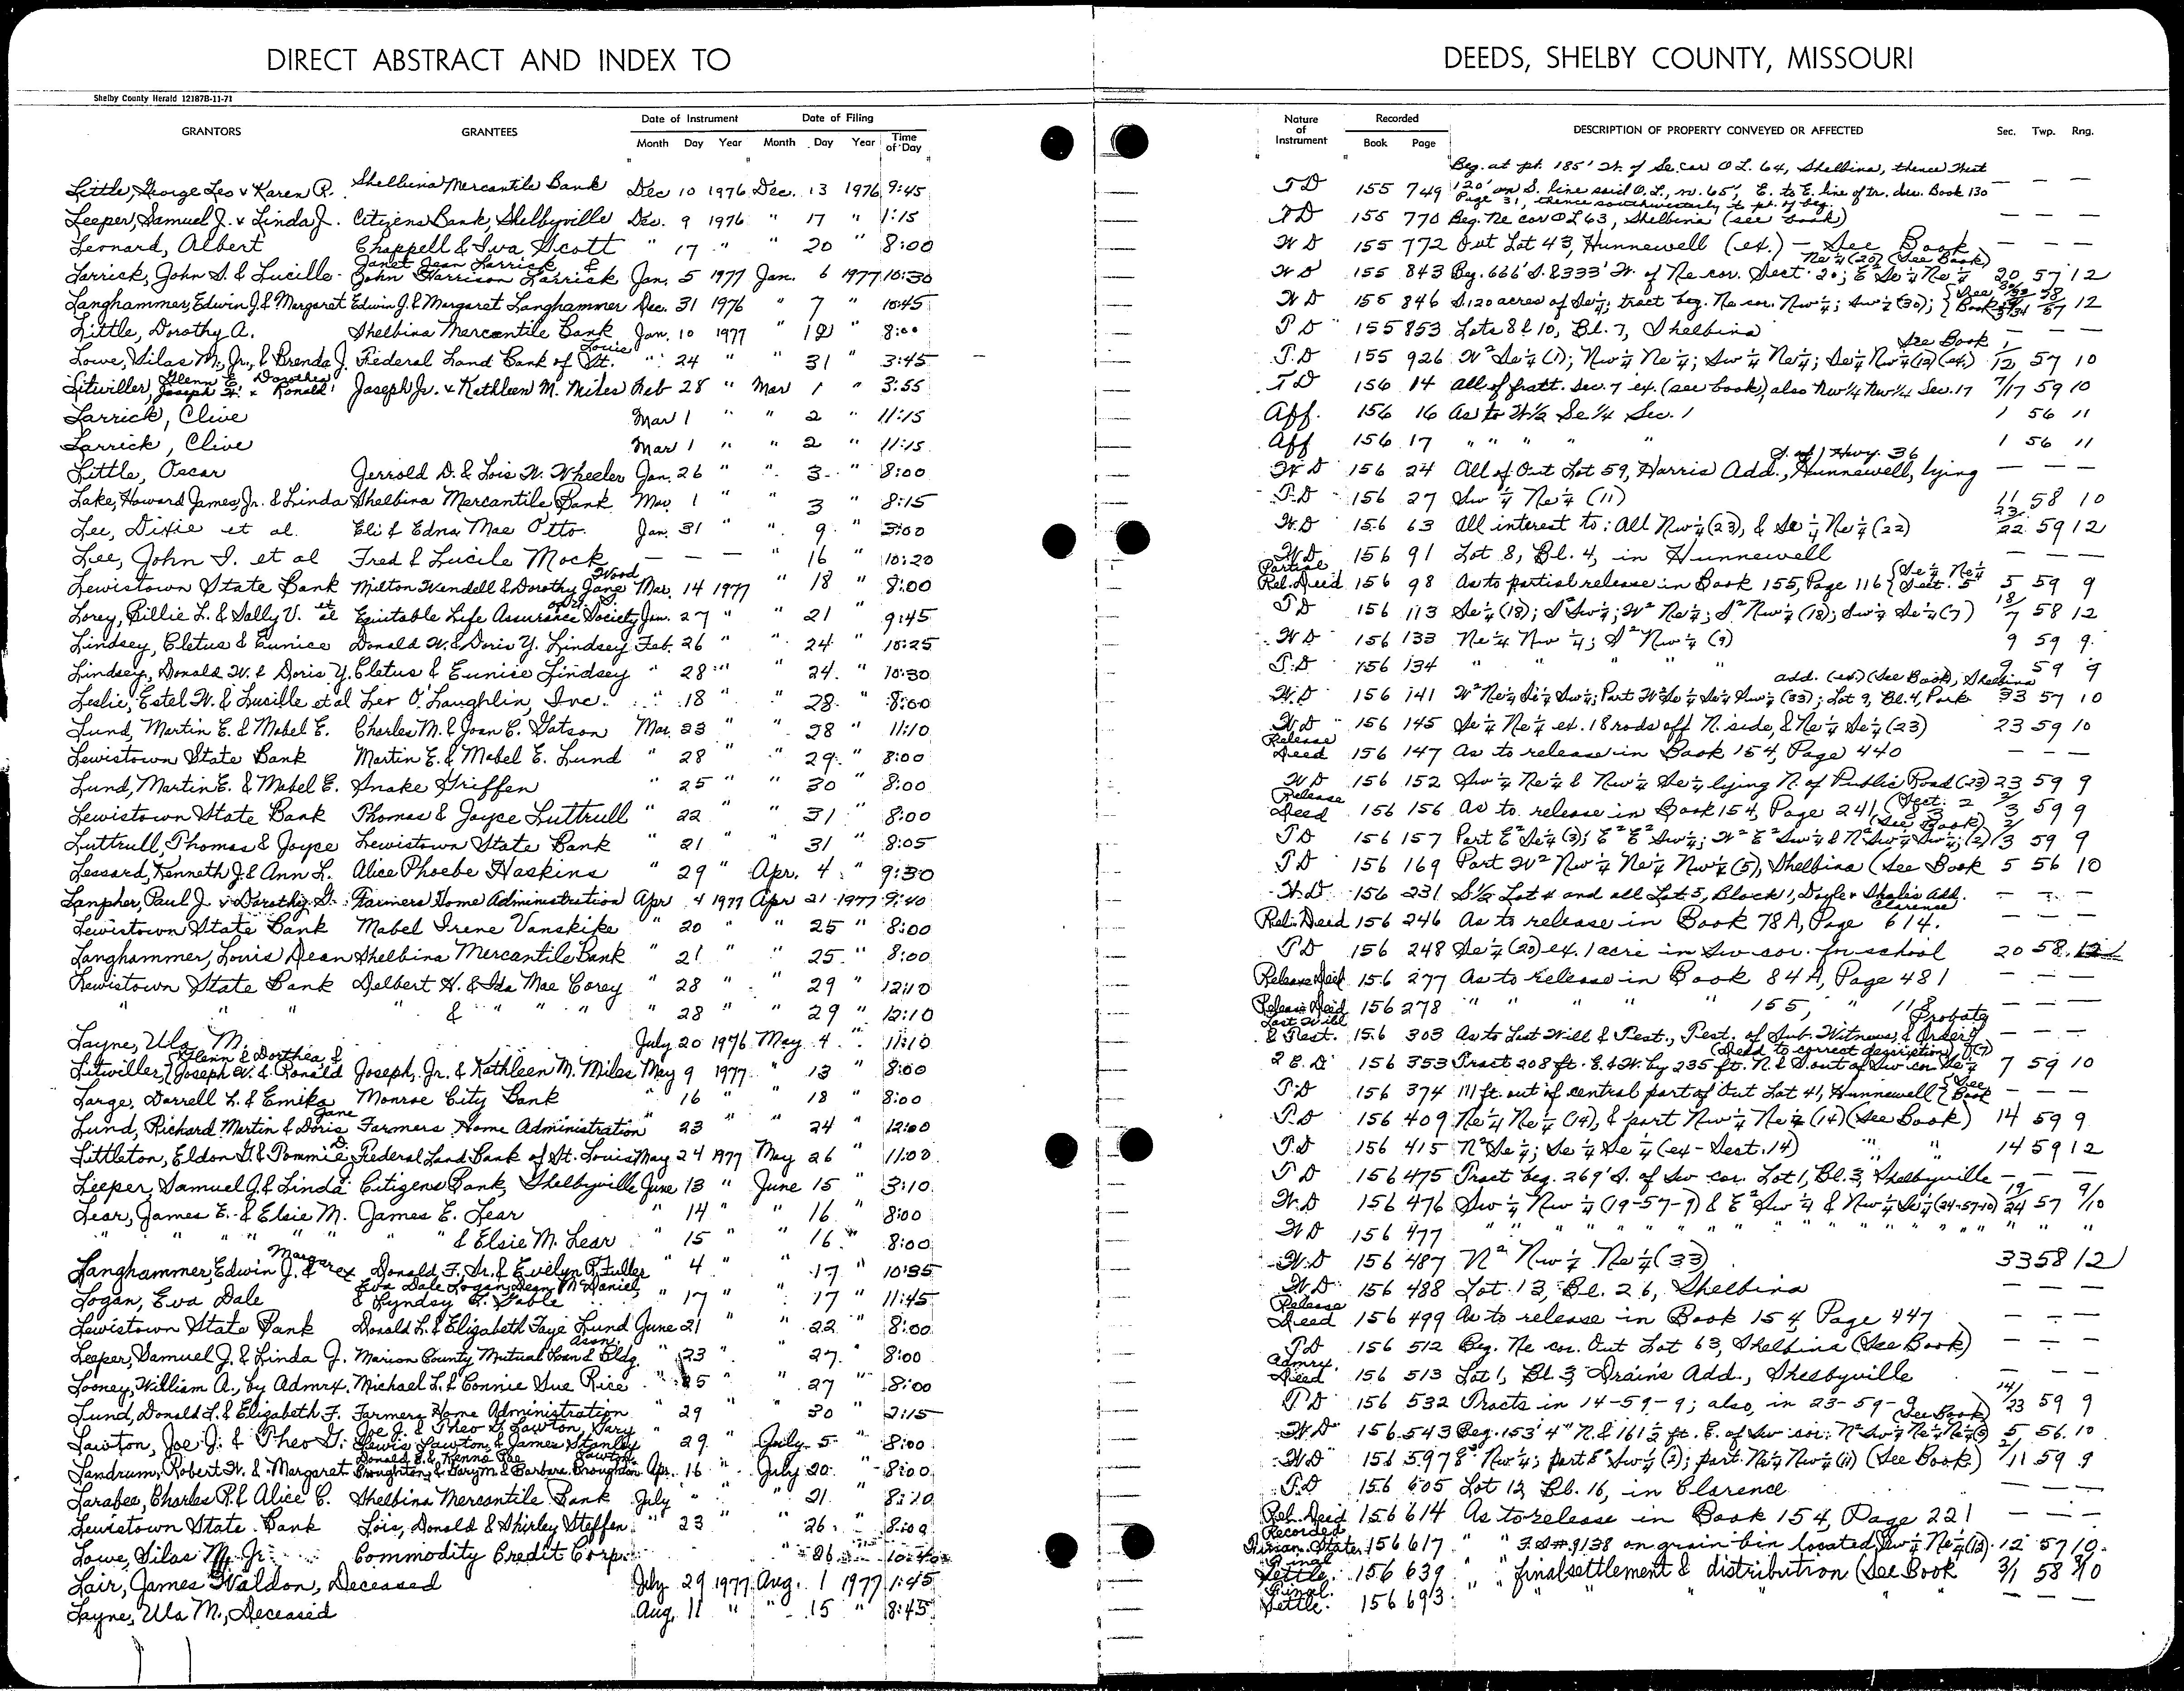 DIRECT ABSTRACT AND INDEX TO DEEDS, SHELBY COUNTY, MISSOURI
Shelby County Herald 12187B-11-71
GRANTORS GRANTEES Date of Instrument Date of Filing Nature of Instrument Recorded DESCRIPTION OF PROPERTY CONVEYED OR AFFECTED Sec. Twp. Rng.
Month Day Year Month Day Year Time of Day Book Page
Little, George Leo & Karen R. Shelbina Mercantile Bank Dec 10 1976 Dec. 13 1976 9:45 TD 155 749 Beg. at pt. 185' W. of Se. cor O L. 64, Shelbina, thence West 120' on S. line said O.L., N. 65', E. to E. line of tr. des. Book 130 Page 31, thence southwesterly to pt. of beg. — — —
Leeper, Samuel J. & Linda J. Citizens Bank, Shelbyville Dec. 9 1976 " 17 " 1:15 TD 155 770 Beg. Ne cor O L 63, Shelbina (see book) — — —
Leonard, Albert Chappell & Iva Scott " 17 " " 20 " 8:00 WD 155 772 Out Lot 43, Hunnewell (ex.) — See Book — — —
Larrick, John S. & Lucille Janet Jean Larrick & John Harrison Larrick Jan. 5 1977 Jan. 6 1977 10:30 WD 155 843 Beg. 666' S. & 333' W. of Ne cor. Sect. 20; E² Se¼ Ne¼ Ne¼ (20) (See Book) 20 57 12
Langhammer, Edwin J. & Margaret Edwin J. & Margaret Langhammer Dec. 31 1976 " 7 " 10:45 WD 155 846 S. 120 acres of Se¼; tract beg. Ne cor. Nw¼; Sw¼ (30); {See Book 12
Little, Dorothy A. Shelbina Mercantile Bank Jan. 10 1977 " 8:00 TD 155 853 Lots 8 & 10, Bl. 7, Shelbina — — —
Lowe, Silas M., Jr., & Brenda J. Federal Land Bank of St. Louis " 24 " " 31 " 3:45 T.D 155 926 W² Se¼ (1); Nw¼ Ne¼; Sw¼ Ne¼; Se¼ Nw¼ (12) (ex.) See Book 1/12 57 10
Litwiller, Glenn E. Dorothea Joseph W. & Ronald Joseph Jr. & Kathleen M. Miles Feb 28 " Mar 1 " 3:55 TD 156 14 All of fractl. Sec. 7 ex. (see book), also Nw¼ Nw¼ Sec. 17 7/17 59 10
Larrick, Clive Mar 1 " " 2 " 11:15 Aff. 156 16 As to W½ Se¼ Sec. 1 1 56 11
Larrick, Clive Mar 1 " " 2 " 11:15 Aff 156 17 " " " " " 1 56 11
Little, Oscar Jerrold D. & Lois W. Wheeler Jan. 26 " " 3 " 8:00 WD 156 24 All of Out Lot 59, Harris Add., Hunnewell, lying Hwy. 36 — — —
Lake, Howard James, Jr. & Linda Shelbina Mercantile Bank Mar. 1 " " 3 " 8:15 T.D 156 27 Sw¼ Ne¼ (11) 11 58 10
Lee, Dixie et al. Eli & Edna Mae Otto Jan. 31 " " 9 " 3:00 W.D 156 63 All interest to: All Nw¼ (23), & Se¼ Ne¼ (22) 23/22 59 12
Lee, John I. et al Fred & Lucile Mock — — — " 16 " 10:20 WD 156 91 Lot 8, Bl. 4, in Hunnewell — — —
Lewistown State Bank Milton Wendell & Dorothy Jane Wood Mar. 14 1977 " 18 " 8:00 Partial Rel. Deed 156 98 As to partial release in Book 155, Page 116 {Se¼ Ne¼ Sect. 5 5 59 9
Lorey, Billie L. & Sally V. et al Equitable Life Assurance Society of U.S. Jan. 27 " " 21 " 9:45 TD 156 113 Se¼ (18); S² Sw¼; W² Ne¼; S² Nw¼ (18); Sw¼ Se¼ (7) 18/7 58 12
Lindsey, Cletus & Eunice Donald W. & Doris Y. Lindsey Feb. 26 " " 24 " 10:25 WD 156 133 Ne¼ Nw¼; S² Nw¼ (9) 9 59 9
Lindsey, Donald W. & Doris Y. Cletus & Eunice Lindsey " 28 " " 24 " 10:30 T.D 156 134 " " " " " 9 59 9
Leslie, Estel W. & Lucille et al Leo O'Laughlin, Inc. " 18 " " 28 " 8:00 W.D 156 141 W² Ne¼ Se¼ Sw¼; Part W² Se¼ Se¼ Sw¼ (33); Lot 9, Bl. 4, Park add. (ex.) (See Book), Shelbina 33 57 10
Lund, Martin E. & Mabel E. Charles M. & Joan C. Watson Mar. 23 " " 28 " 11:10 W.D 156 145 Se¼ Ne¼ ex. 18 rods off N. side, & Ne¼ Se¼ (23) 23 59 10
Lewistown State Bank Martin E. & Mabel E. Lund " 28 " 29 " 8:00 Release Deed 156 147 As to release in Book 154, Page 440 — — —
Lund, Martin E. & Mabel E. Snake Griffen " 25 " " 30 " 8:00 WD 156 152 Sw¼ Ne¼ & Nw¼ Se¼ lying N. of Public Road (23) 23 59 9
Lewistown State Bank Thomas & Joyce Luttrull " 22 " " 31 " 8:00 Release Deed 156 156 As to release in Book 154, Page 241, (Sect. 2 & 3 (See Book) 2/3 59 9
Luttrull, Thomas & Joyce Lewistown State Bank " 21 " 31 " 8:05 TD 156 157 Part E² Se¼ (3); E² E² Sw¼; W² E² Sw¼ & N² Sw¼ Sw¼; (2) 2/3 59 9
Lessard, Kenneth J. & Ann L. Alice Phoebe Haskins " 29 " Apr. 4 " 9:30 TD 156 169 Part W² Nw¼ Ne¼ Nw¼ (5), Shelbina (See Book 5 56 10
Lanpher, Paul J. & Dorothy G. Farmers Home Administration Apr 4 1977 Apr 21 1977 9:40 W.D 156 231 S½ Lot 4 and all Lot 5, Block 1, Doyle & Shale's Add. Clarence — — —
Lewistown State Bank Mabel Irene Vanskike " 20 " " 25 " 8:00 Rel. Deed 156 246 As to release in Book 78A, Page 614. — — —
Langhammer, Louis Dean Shelbina Mercantile Bank " 21 " " 25 " 8:00 TD 156 248 Se¼ (20) ex. 1 acre in Sw cor. for school 20 58 12
Lewistown State Bank Delbert H. & Ida Mae Corey " 28 " " 29 " 12:10 Release Deed 156 277 As to release in Book 84 A, Page 481 — — —
" " " " & " " " " 28 " " 29 " 12:10 Release Deed 156 278 " " " " " 155, " 118 — — —
Layne, Ula M. July 20 1976 May 4 " 11:10 Last Will & Test. 156 303 As to Last Will & Test., Test. of Sub. Witness, & Order of Probate — — —
Litwiller, {Glenn & Dorthea, & Joseph W. & Ronald Joseph, Jr. & Kathleen M. Miles May 9 1977 " 13 " 8:00 2 E. D. 156 353 Tract 208 ft. E. & W. by 235 ft. N. & S. out of Sw cor Se¼ (7) (Deed to correct description) 7 59 10
Large, Darrell L. & Emiko Monroe City Bank " 16 " " 18 " 8:00 T.D 156 374 111 ft. out of central part of Out Lot 41, Hunnewell {See Book — — —
Lund, Richard Martin & Doris Jane Farmers Home Administration " 23 " " 24 " 12:00 T.D 156 409 Ne¼ Ne¼ (14), & part Nw¼ Ne¼ (14) (See Book) 14 59 9
Littleton, Eldon G. & Tommie D. Federal Land Bank of St. Louis May 24 1977 May 26 " 11:00 T.D 156 415 N² Se¼; Se¼ Se¼ (ex - Sect. 14) " " 14 59 12
Leeper, Samuel J. & Linda Citizens Bank, Shelbyville June 13 " June 15 " 3:10 TD 156 475 Tract beg. 269' S. of Sw cor. Lot 1, Bl. 3, Shelbyville — — —
Lear, James E. & Elsie M. James E. Lear " 14 " " 16 " 8:00 W.D 156 476 Sw¼ Nw¼ (19-57-9) & E² Sw¼ & Nw¼ Se¼ (24-57-10) 19/24 57 9/10
" " " " " " & Elsie M. Lear " 15 " " 16 " 8:00 WD 156 477 " " " " " " " " " " "
Langhammer, Edwin J. & Margaret Donald F., Sr. & Evelyn R. Fuller " 4 " " 17 " 10:35 W.D 156 487 N² Nw¼ Ne¼ (33) 33 58 12
Logan, Eva Dale Eva Dale Logan, Dean McDaniel, & Lyndsy C. Gable " 17 " " 17 " 11:45 WD 156 488 Lot 13, Bl. 26, Shelbina — — —
Lewistown State Bank Donald L. & Elizabeth Faye Lund June 21 " " 22 " 8:00 Release Deed 156 499 As to release in Book 154 Page 447 — — —
Leeper, Samuel J. & Linda J. Marion County Mutual Loan & Bldg. Assn. " 23 " " 27 " 8:00 TD 156 512 Beg. Ne cor. Out Lot 63, Shelbina (See Book) — — —
Looney, William A., by Admrx. Michael L. & Connie Sue Rice " 25 " " 27 " 8:00 Admrx. Deed 156 513 Lot 1, Bl. 3, Drain's Add., Shelbyville — — —
Lund, Donald L. & Elizabeth F. Farmers Home Administration " 29 " 30 " 2:15 TD 156 532 Tracts in 14-59-9; also, in 23-59-9 (See Book) 14/23 59 9
Lawton, Joe J. & Theo G. Joe J. & Theo G. Lawton, Gary Lewis Lawton, & James Stanley Lawton " 29 " July 5 " 8:00 W.D 156 543 Beg. 153' 4" N. & 161½ ft. E. of Sw cor. N² Sw¼ Ne¼ Ne¼ 5 5 56 10
Landrum, Robert W. & Margaret Donald E. & Kenna Rae Broughton, & Gary M. & Barbara Broughton Apr. 16 " July 20 " 8:00 WD 156 597 Nw¼; part E² Sw¼ (2); part Ne¼ Nw¼ (11) (See Book) 2/11 59 9
Larabee, Charles R. & Alice C. Shelbina Mercantile Bank July " " 21 " 8:20 T.D 156 605 Lot 12, Bl. 16, in Clarence — — —
Lewistown State Bank Lois, Donald & Shirley Steffen " 23 " 26 8:00 Rel. Deed 156 614 As to release in Book 154, Page 221 — — —
Lowe, Silas M. Jr. Commodity Credit Corp. " 26 10:40 Recorded Finan. State. 156 617 " " F.S.# 9138 on grain bin located Sw¼ Ne¼ (12) 12 57 10
Lair, James Waldon, Deceased July 29 1977 Aug. 1 1977 1:45 Final Settle. 156 639 " " final settlement & distribution (See Book 3/1 58 9/10
Layne, Ula M., Deceased Aug. 11 " " 15 " 8:45 Final Settle. 156 693 " " " " " — — —